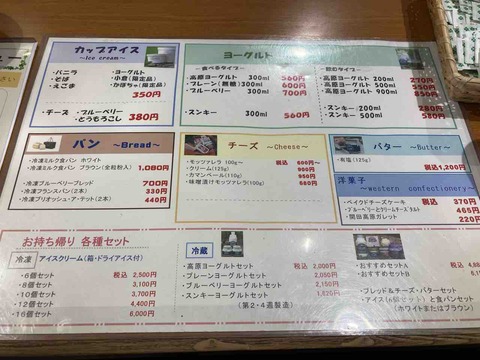 カップアイス
～Ice cream～
・バニラ
・そば
・えごま
・ヨーグルト
・小倉(限定品)
・かぼちゃ(限定品)
350円
・チーズ・ブルーベリー
・とうもろこし 380円
ヨーグルト
～食べるタイプ～
・高原ヨーグルト 300ml 560円
・プレーン(無糖) 300ml 600円
・ブルーベリー 300ml 700円
・スンキー 300ml 560円
～飲むタイプ～
・高原ヨーグルト 200ml 270円
・高原ヨーグルト 500ml 550円
・高原ヨーグルト 900ml
・スンキー 200ml 280円
・スンキー 500ml
パン ～Bread～
・冷凍ミルク食パン ホワイト
・冷凍ミルク食パン ブラウン(全粒粉入) 1,080円
・冷凍ブルーベリーブレッド 700円
・冷凍フランスパン(2本) 330円
・冷凍ブリオッシュ・ア・テット(2本) 440円
チーズ ～Cheese～
税込
・モッツァレラ 100g～ 600円～
・クリーム(125g) 900円
・カマンベール(110g) 950円
・味噌漬けモッツァレラ(100g) 680円
バター ～Butter～
・有塩(150g)
税込1,200円
洋菓子
～western confectionery～
・ベイクドチーズケーキ 税込 370円
・ブルーベリーとクリームチーズタルト 465円
・開田高原ガレット 220円
お持ち帰り 各種セット
冷凍 アイスクリーム(箱・ドライアイス付)
・6個セット 税込 2,500円
・8個セット 3,100円
・10個セット 3,700円
・12個セット 4,400円
・16個セット 6,000円
冷蔵
・高原ヨーグルトセット 税込 2,000円
・プレーンヨーグルトセット 2,050円
・ブルーベリーヨーグルトセット 2,150円
・スンキーヨーグルトセット 1,620円
(第2・4週製造)
・おすすめセットA 税込
・おすすめセットB
・ブレッド&チーズ・バターセット
・アイス(6個セット)と食パンセット
(ホワイトまたはブラウン)